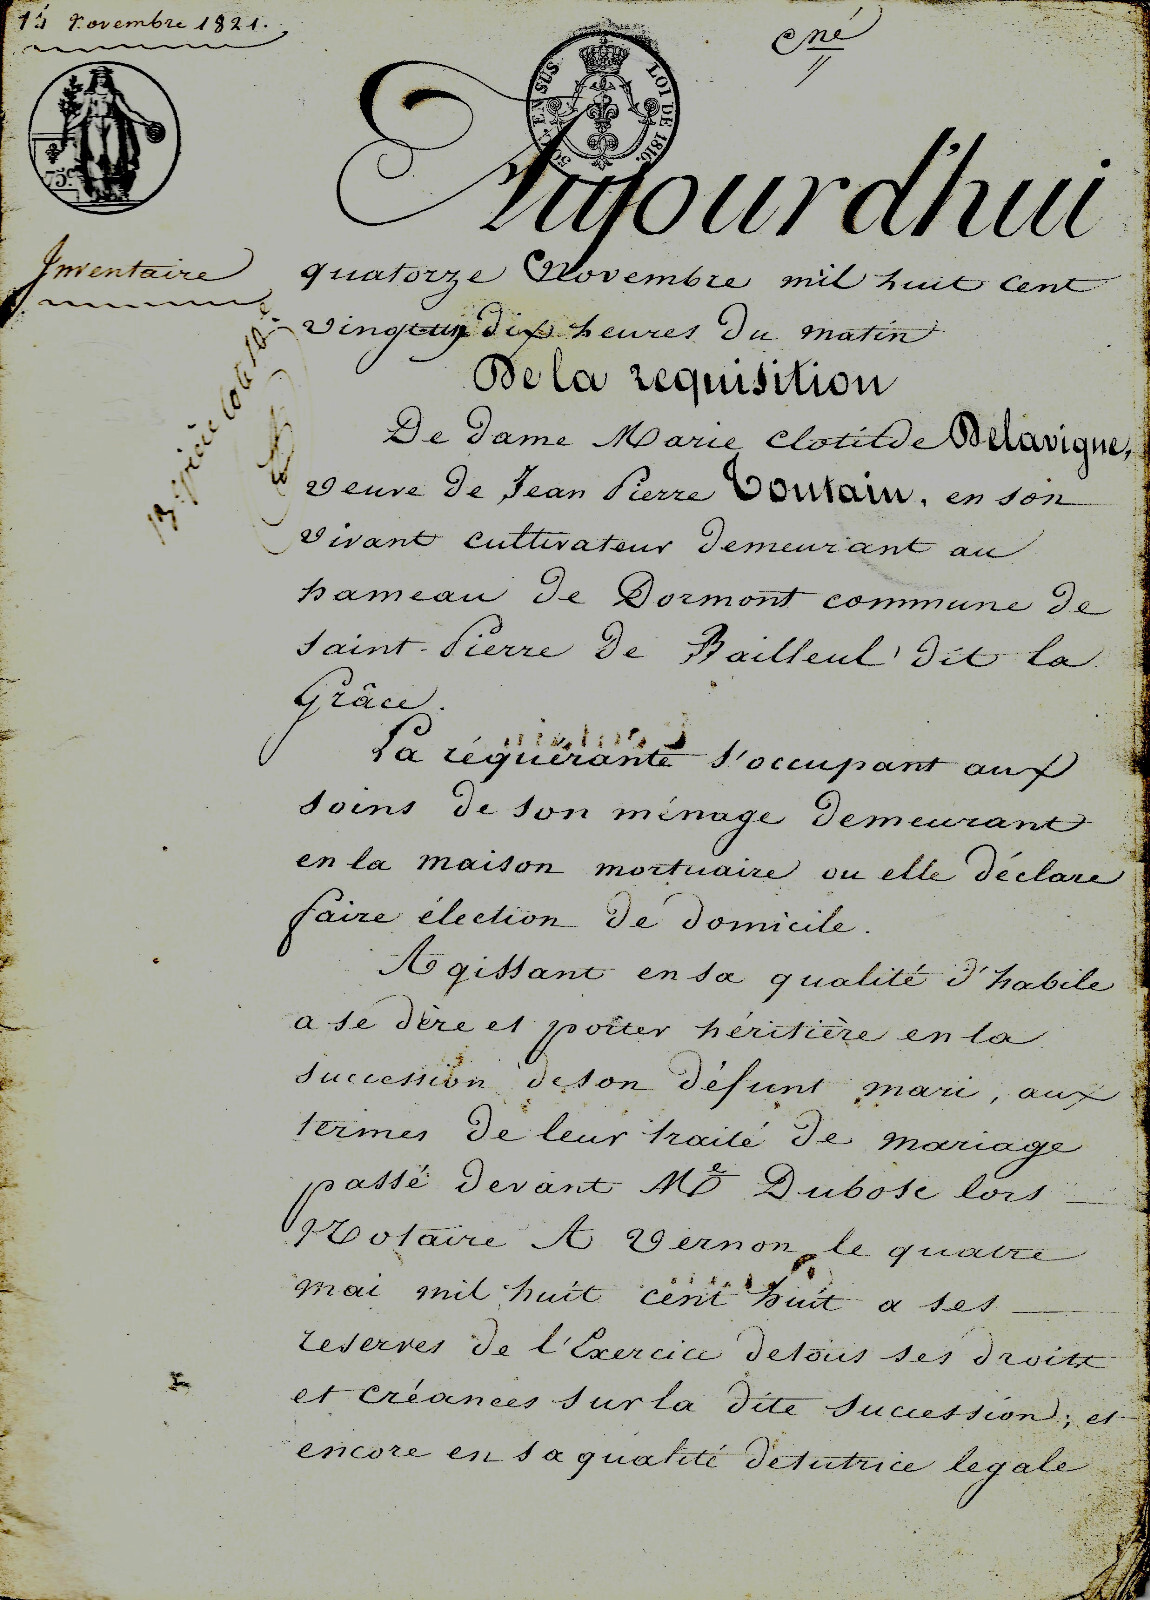 15 Novembre 1821.
cné
50 C. EN SUS
LOI DE 1816.
75c
Aujourd'hui
Inventaire
quatorze Novembre mil huit cent
vingt un dix heures du matin
De la requisition
De dame Marie Clotilde Delavigne,
veuve de Jean Pierre Toutain, en son
vivant cultivateur demeurant au
hameau de Dormont commune de
saint-Pierre de Bailleul dit la
Grâce.
La réquérante s'occupant aux
soins de son ménage demeurant
en la maison mortuaire ou elle déclare
faire élection de domicile.
Agissant en sa qualité d'habile
a se dire et porter héritière en la
succession de son défunt mari, aux
termes de leur traité de mariage
passé devant Me Dubosc lors
Notaire A Vernon le quatre
mai mil huit cent huit a ses
reserves de l'Exercice de tous ses droits
et créances sur la dite succession; et
encore en sa qualité de tutrice legale
13e pièce cote 10e